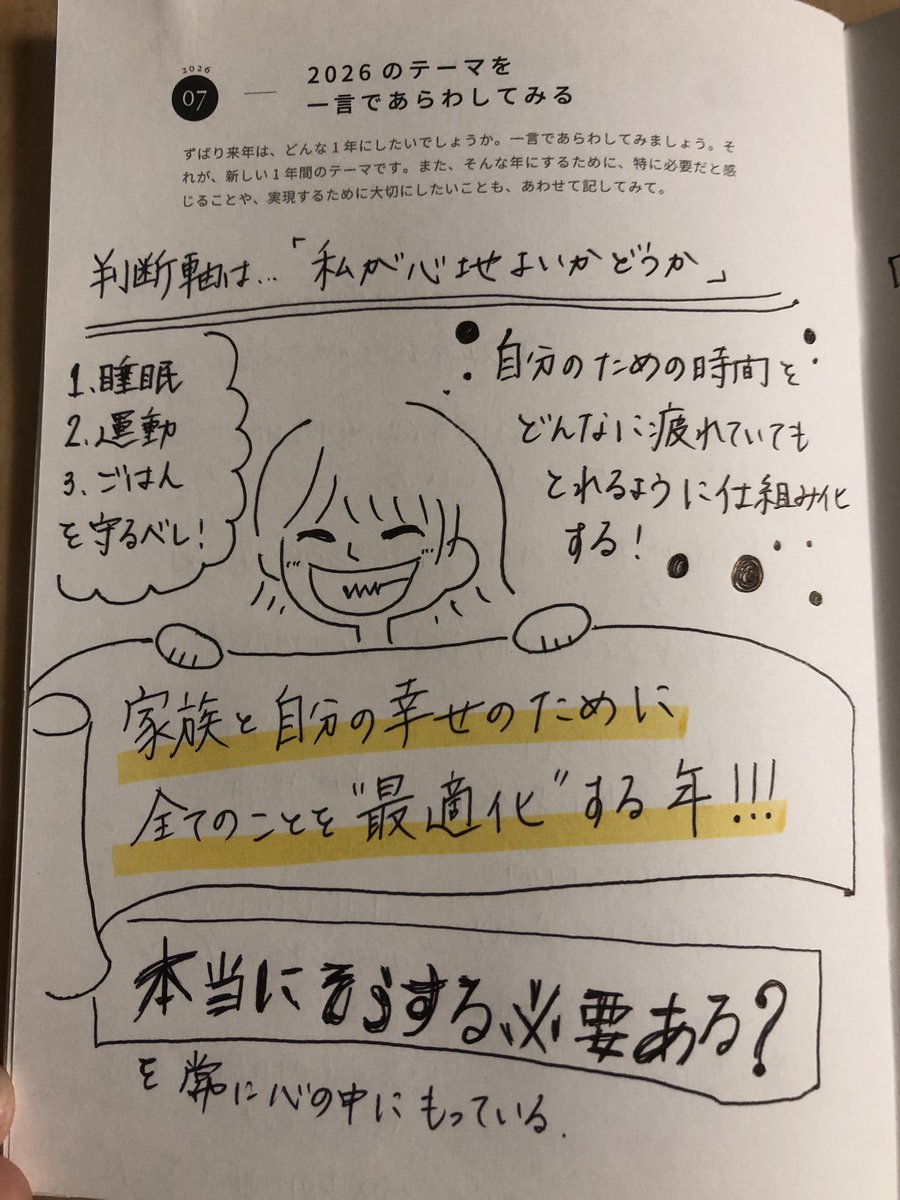 2026
07
2026のテーマを
一言であらわしてみる
ずばり来年は、どんな1年にしたいでしょうか。一言であらわしてみましょう。そ
れが、新しい1年間のテーマです。また、そんな年にするために、特に必要だと感
じることや、実現するために大切にしたいことも、あわせて記してみて。
判断軸は…「私が心地よいかどうか」
1.睡眠
2.運動
3.ごはん
を守るべし!
自分のための時間を
どんなに疲れていても
とれるように仕組み化
する!
家族と自分の幸せのために
全てのことを"最適化"する年!!!
本当にそうする必要ある?
を常に心の中にもっている.